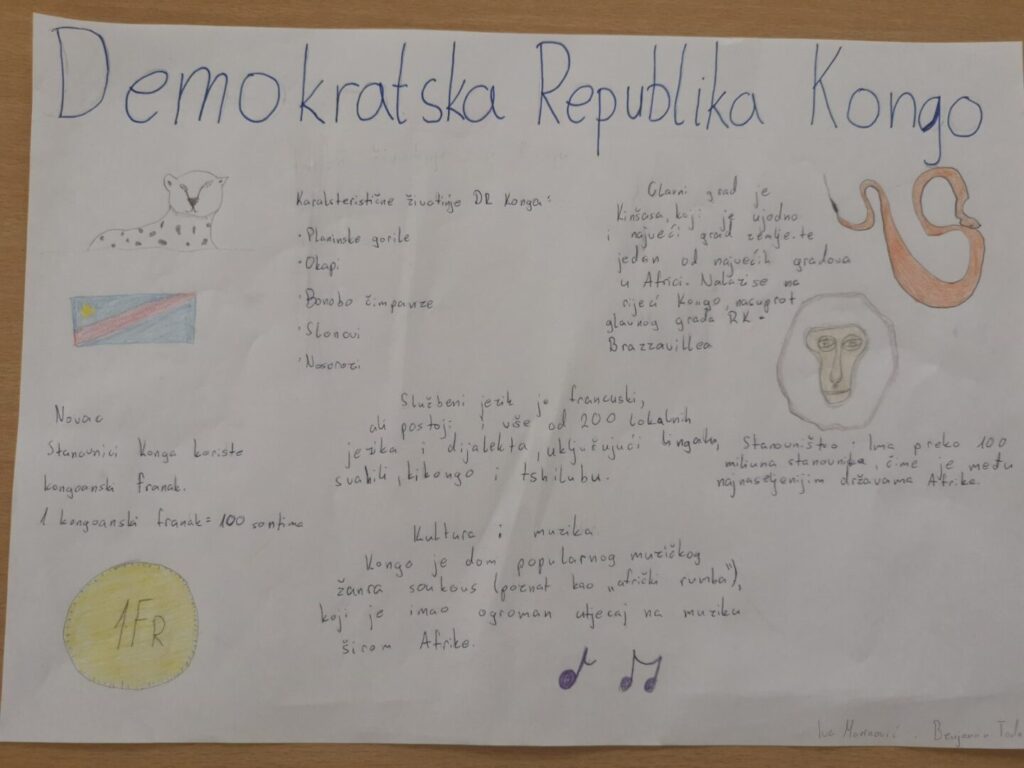 Demokratska Republika Kongo
Karakteristične životinje DR Konga:
· Planinske gorile
· Okapi
· Bonobo čimpanze
· Slonovi
· Nosorozi
Glavni grad je
Kinšasa, koji je ujedno
i najveći grad zemlje te
jedan od najvećih gradova
u Africi. Nalazi se na
rijeci Kongo, nasuprot
glavnog grada RK -
Brazzavillea
Novac
Stanovnici Konga koriste
kongoanski franak.
1 kongoanski franak = 100 sontima
1FR
Službeni jezik je francuski,
ali postoji i više od 200 lokalnih
jezika i dijalekta, uključujući lingalu,
svahili, kikongo i tshilubu.
Stanovništvo: Ima preko 100
miliuna stanovnika, čime je među
najnaseljenijim državama Afrike.
Kultura i muzika
Kongo je dom popularnog muzičkog
žanra soukous (poznat kao „afrički rumba"),
koji je imao ogroman utjecaj na muziku
širom Afrike.